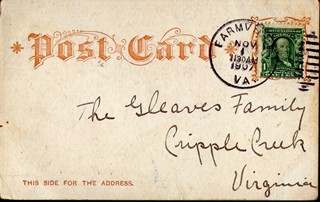 Post Card
FARMV
NOV
1
1130AM
1907
VA.
The Gleaves Family
Cripple Creek
Virginia
THIS SIDE FOR THE ADDRESS.